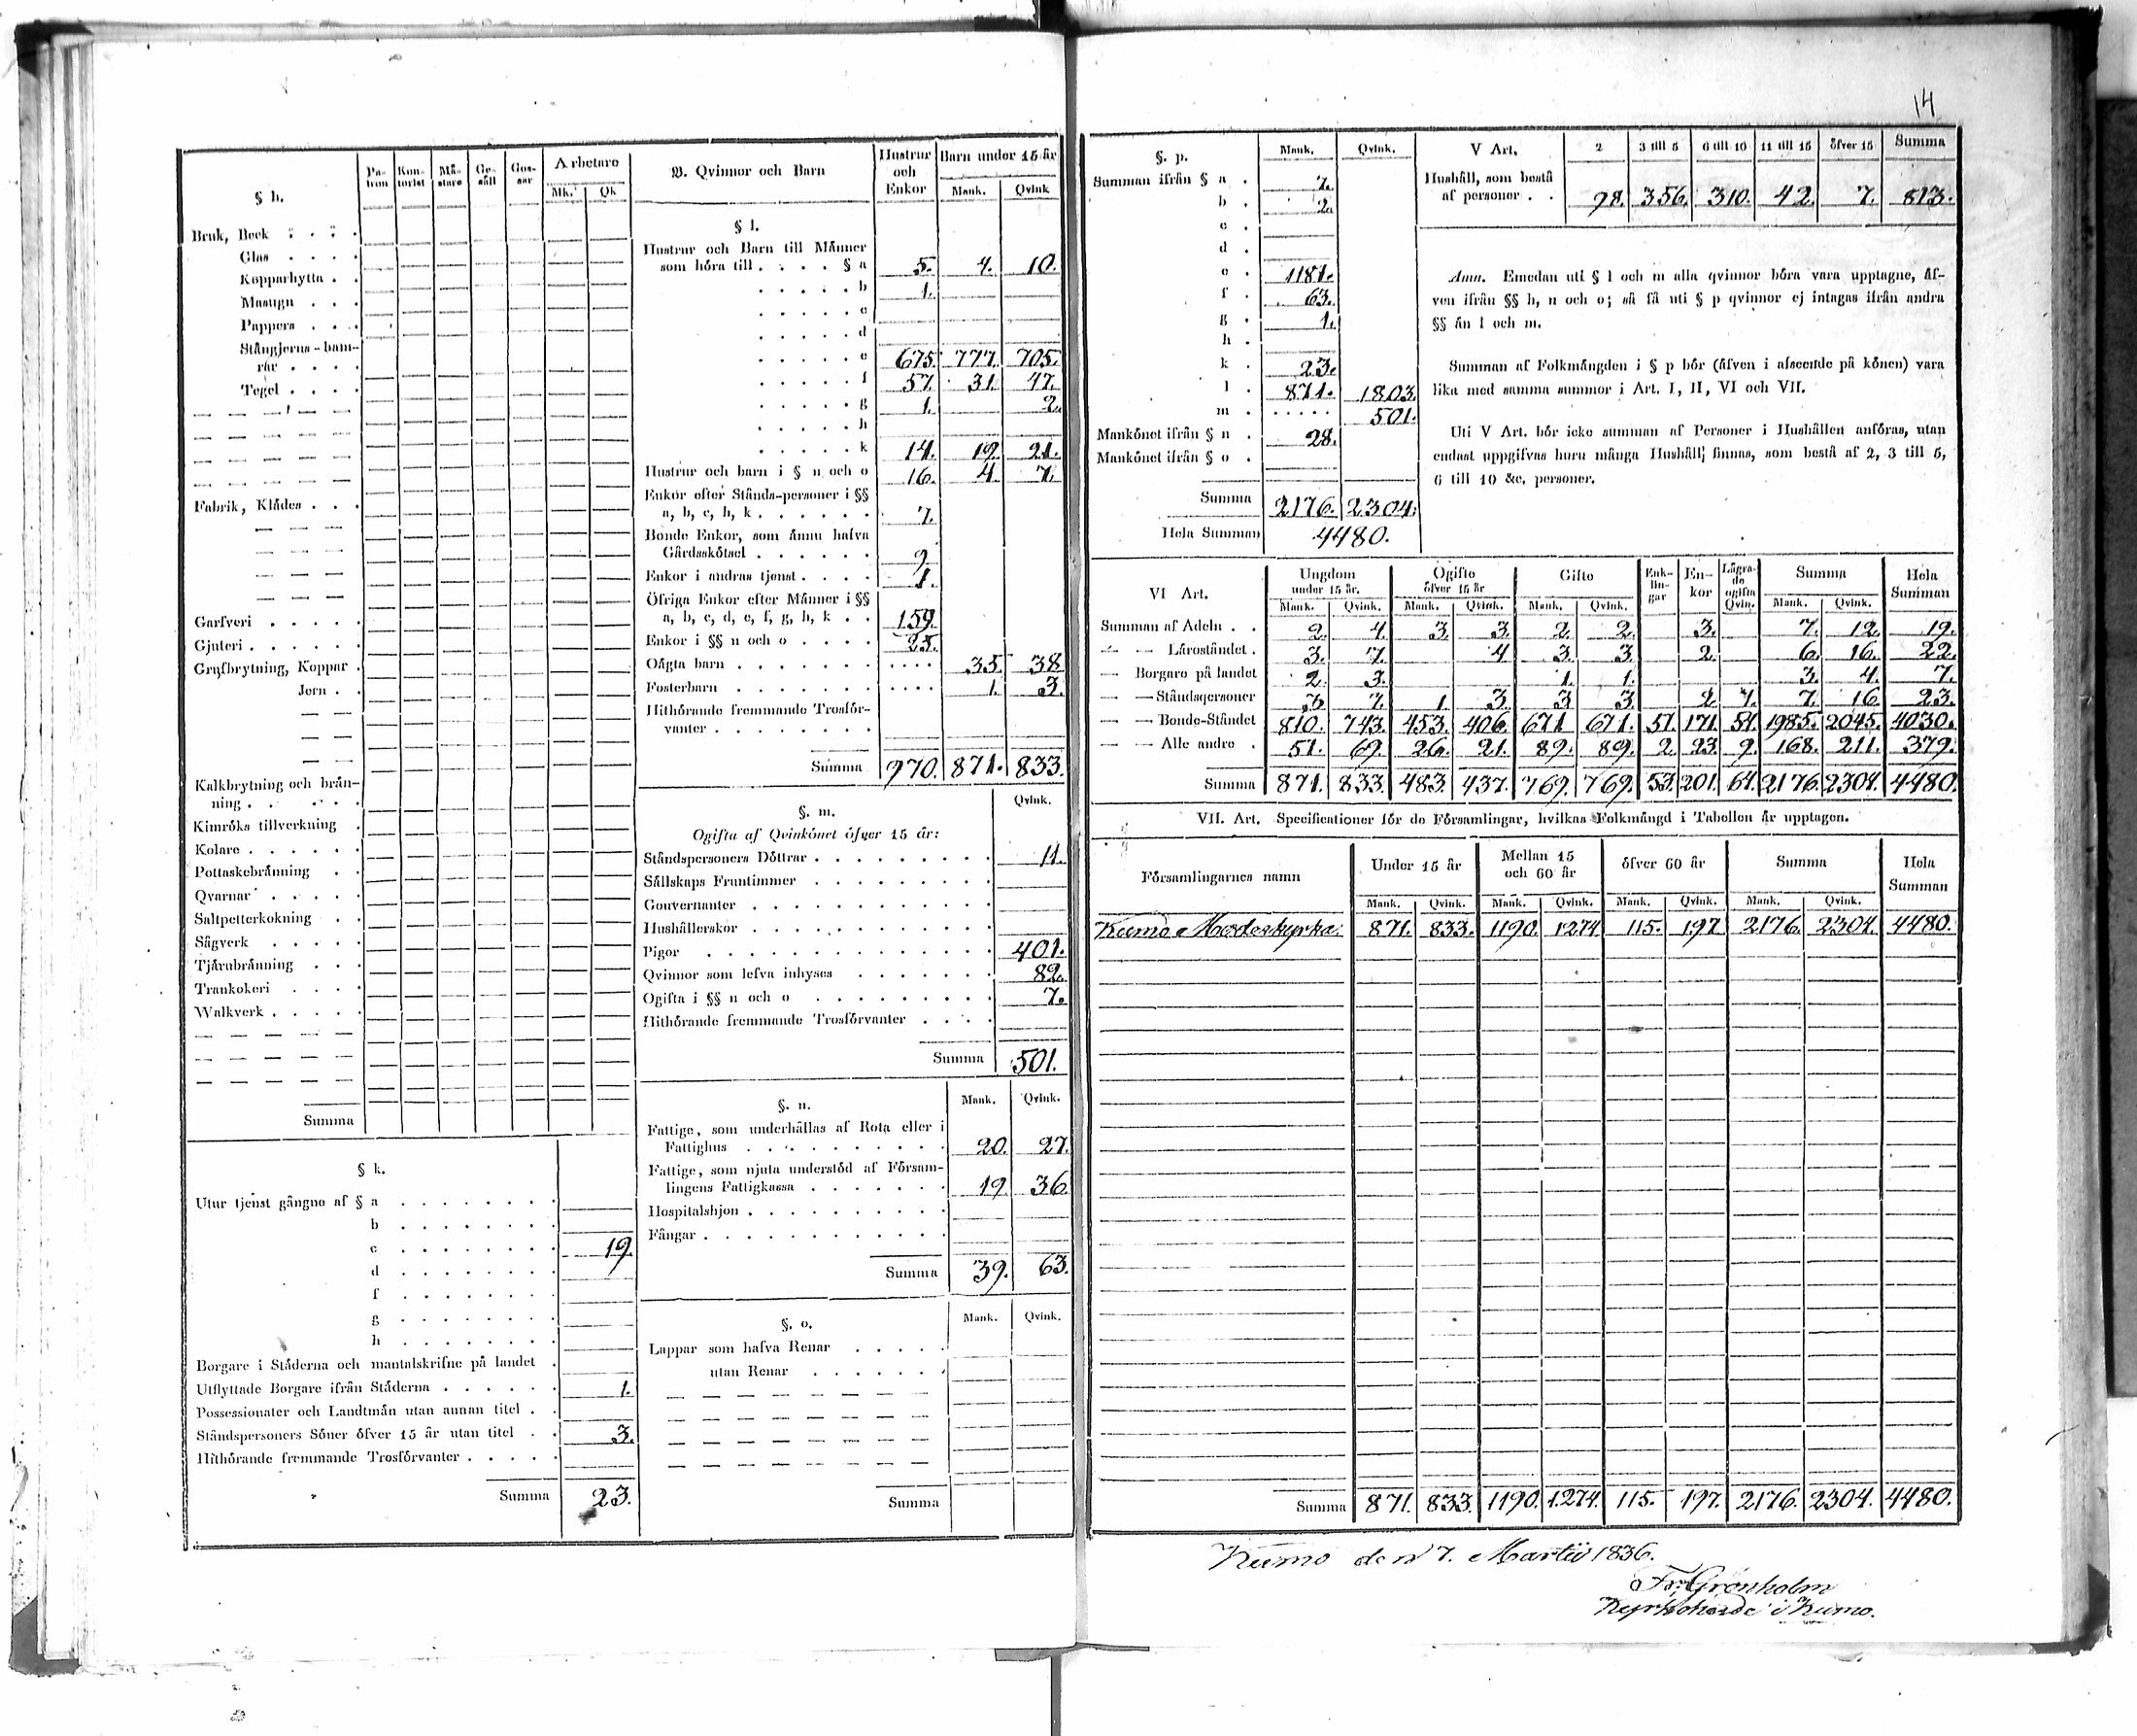 14
§ h.
Pa-tron Kon-torist Må-stare Ge-såll Gos-sar Arbetare
Mk. Qk
Bruk, Beck . . . .
Glas . . . .
Kopparhytta . .
Masugn . . .
Pappers . . . .
Stångjerns-ham-
rar . . . .
Tegel . . . .
Fabrik, Klådes . . .
Garfveri . . . . .
Gjuteri . . . . . .
Grufbrytning, Koppar .
Jern . .
Kalkbrytning och brån-
ning . . . . . .
Kimröks tillverkning .
Kolare . . . . . .
Pottaskebrånning . .
Qvarnar . . . . .
Saltpetterkokning . .
Sågverk . . . . .
Tjårubrånning . . .
Trankokeri . . . .
Walkverk . . . . .
Summa
§ k.
Utur tjenst gångne af § a . . . . . . .
b . . . . . . . .
c . . . . . . . . 19.
d . . . . . . . .
f . . . . . . . .
g . . . . . . . .
h . . . . . . . .
Borgare i Ståderna och mantalskrifne på landet .
Utflyttade Borgare ifrån Ståderna . . . . . . 1.
Possessionater och Landtmån utan annan titel . .
Ståndspersoners Söner öfver 15 år utan titel . . 3.
Hithörande fremmande Trosförvanter . . . . .
Summa 23.
B. Qvinnor och Barn Hustrur och Enkor Barn under 15 år
Mank. Qvink
§ l.
Hustrur och Barn till Månner
som höra till . . . . § a 5. 4. 10.
. . . . . b 1.
. . . . . c
. . . . . d
. . . . . e 675. 777. 705.
. . . . . f 57. 31. 47.
. . . . . g 1. 2.
. . . . . h
. . . . . k 14. 19. 21.
Hustrur och barn i § n och o 16. 4. 7.
Enkor efter Stånds-personer i §§
a, b, c, h, k . . . . . . 7.
Bonde Enkor, som ånnu hafva
Gårdsskötsel . . . . . .
Enkor i andras tjenst . . . . 1.
Öfriga Enkor efter Månner i §§
a, b, c, d, e, f, g, h, k . . 159.
Enkor i §§ n och o . . . . 25.
Oågta barn . . . . . . . . . . . 35. 38
Fosterbarn . . . . . . . . . . . 1. 3.
Hithörande fremmande Trosför-
vanter . . . . . . . .
Summa 970. 871. 833.
§. m. Qvink.
Ogifta af Qvinkönet öfver 15 år:
Ståndspersoners Döttrar . . . . . . . . . 11.
Sållskaps Fruntimmer . . . . . . . . .
Gouvernanter . . . . . . . . . . . .
Hushållerskor . . . . . . . . . . . .
Pigor . . . . . . . . . . . . . . 401.
Qvinnor som lefva inhyses . . . . . . . 82.
Ogifta i §§ n och o . . . . . . . . . 7.
Hithörande fremmande Trosförvanter . . . .
Summa 501.
§. n. Mank. Qvink.
Fattige, som underhållas af Rota eller i
Fattighus . . . . . . . . . . 20. 27.
Fattige, som njuta understöd af Försam-
lingens Fattigkassa . . . . . . . 19. 36.
Hospitalshjon . . . . . . . . . . .
Fångar . . . . . . . . . . . . .
Summa 39. 63.
§. o. Mank. Qvink.
Lappar som hafva Renar . . . . .
utan Renar . . . . . . .
Summa
§. p. Mank. Qvink.
Summan ifrån § a . 7.
b . 2.
c .
d .
e . 1181.
f . 63.
g . 1.
h .
k . 23.
l . 871. 1803.
m . . . . . . 501.
Mankönet ifrån § n . 28.
Mankönet ifrån § o .
Summa 2176. 2304.
Hela Summan 4480.
V Art. 2 3 till 5 6 till 10 11 till 15 öfver 15 Summa
Hushåll, som bestå
af personer . . 98. 356. 310. 42. 7. 813.
Anm. Emedan uti § l och m alla qvinnor böra vara upptagne, åf-
ven ifrån §§ h, n och o; så få uti § p qvinnor ej intagas ifrån andra
§§ ån l och m.
Summan af Folkmångden i § p bör (åfven i afseende på könen) vara
lika med samma summor i Art. I, II, VI och VII.
Uti V Art. bör icke summan af Personer i Hushållen anföras, utan
endast uppgifvas huru många Hushåll finnas, som bestå af 2, 3 till 5,
6 till 10 &c. personer.
VI Art. Ungdom under 15 år. Ogifte öfver 15 år Gifte Enk-lin-gar En-kor Lågra-de ogifta Qvin. Summa Hela Summan
Mank. Qvink. Mank. Qvink. Mank. Qvink. Mank. Qvink.
Summan af Adeln . . 2. 4. 3. 3. 2. 2. 3. 7. 12. 19.
— — Låroståndet . 3. 7. 4 3. 3. 2. 6. 16. 22.
— Borgare på landet 2. 3. 1. 1. 3. 4. 7.
— — Ståndspersoner 3. 7. 1. 3. 3 3. 2 1. 7. 16 23.
— — Bonde-Ståndet 810. 743. 453. 406. 671 671. 51. 171. 54. 1985. 2045. 4030.
— — Alle andre . 51. 69. 26. 21. 89. 89. 2. 23. 9. 168. 211. 379.
Summa 871. 833. 483. 437. 769. 769. 53. 201. 64. 2176. 2304. 4480.
VII. Art. Specificationer för de Församlingar, hvilkas Folkmångd i Tabellen år upptagen.
Församlingarnes namn Under 15 år Mellan 15 och 60 år öfver 60 år Summa Hela Summan
Mank. Qvink. Mank. Qvink. Mank. Qvink. Mank. Qvink.
Kumo Moderkyrka. 871. 833. 1190. 1274 115. 197 2176. 2304. 4480.
Summa 871. 833 1190. 1274. 115. 197. 2176. 2304. 4480.
Kumo den 7. Martii 1836.
Fr. Grönholm
Kyrkoherde i Kumo.